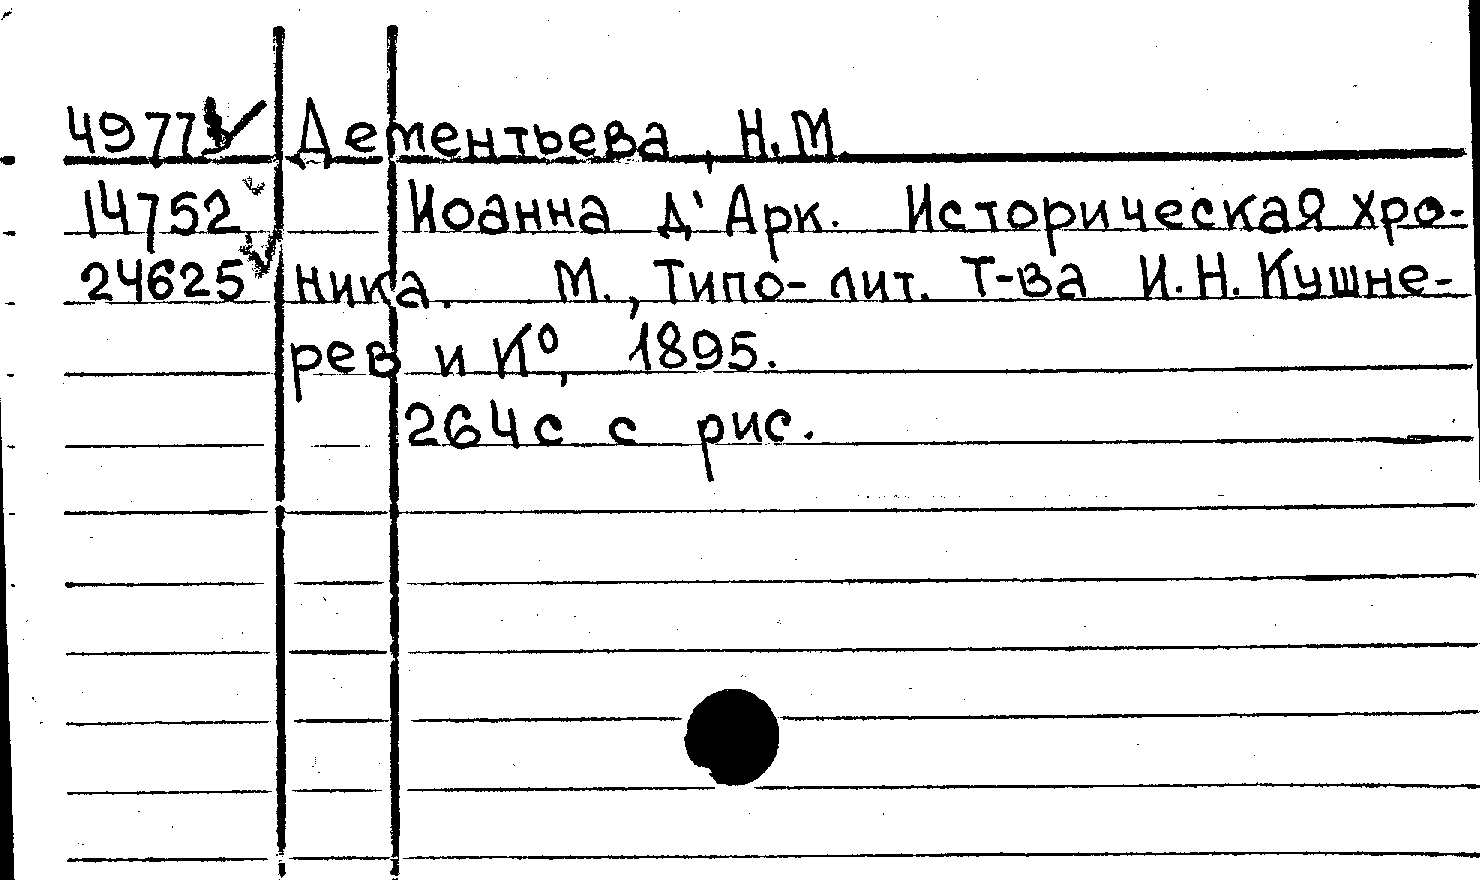 4977 Дементьева, Н.М.
14752 Иоанна д'Арк. Историческая хро-
24625 ника. М., Типо-лит. Т-ва И.Н. Кушне-
рев и К°, 1895.
264 с с рис.